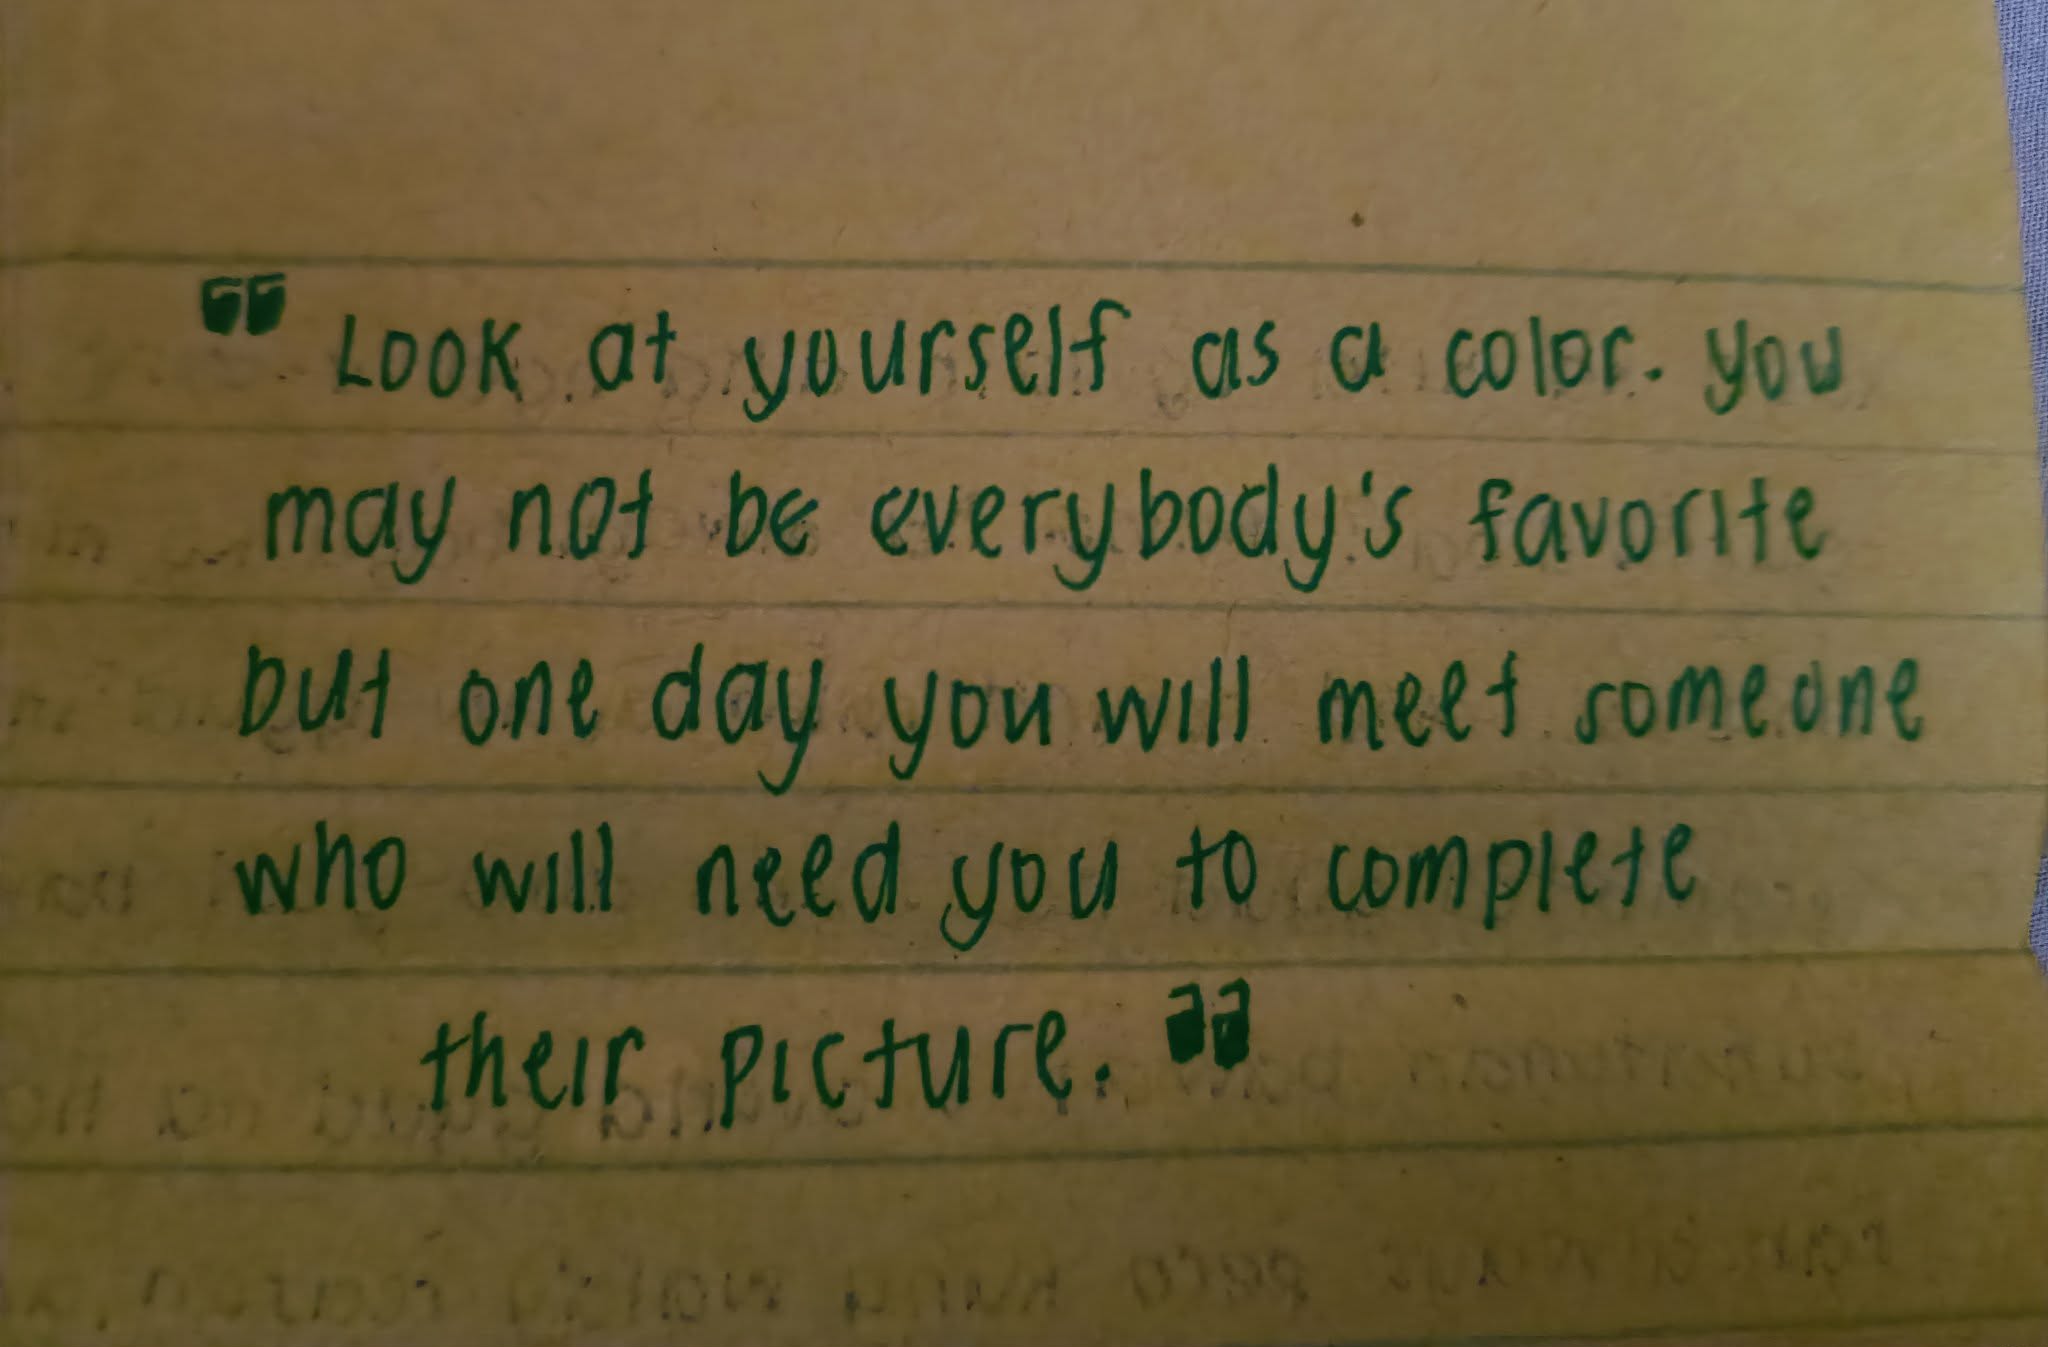 "Look at yourself as a color. You
may not be everybody's favorite
but one day you will meet someone
who will need you to complete
their picture."